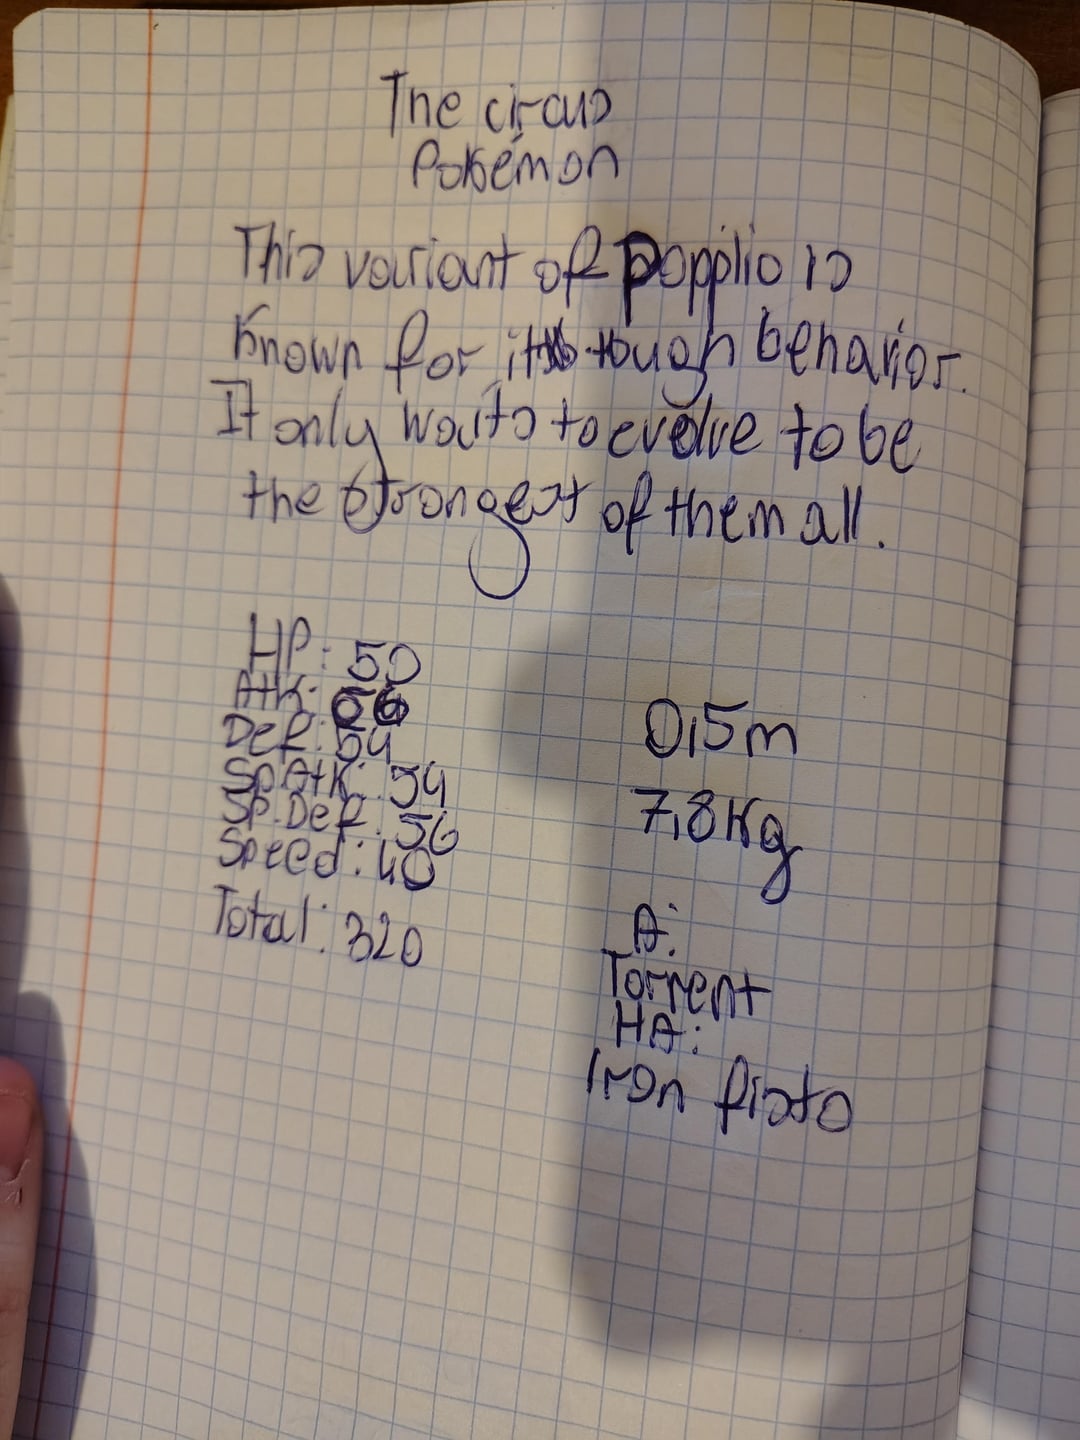 The circus
Pokémon
This variant of popplio is
known for its tough behavior.
It only wants to evolve to be
the strongest of them all.
HP: 50
Atk: 66
Def: 54
Sp.Atk: 54
Sp.Def: 56
Speed: 40
Total: 320
0,5m
7,8kg
A:
Torrent
HA:
Iron fists